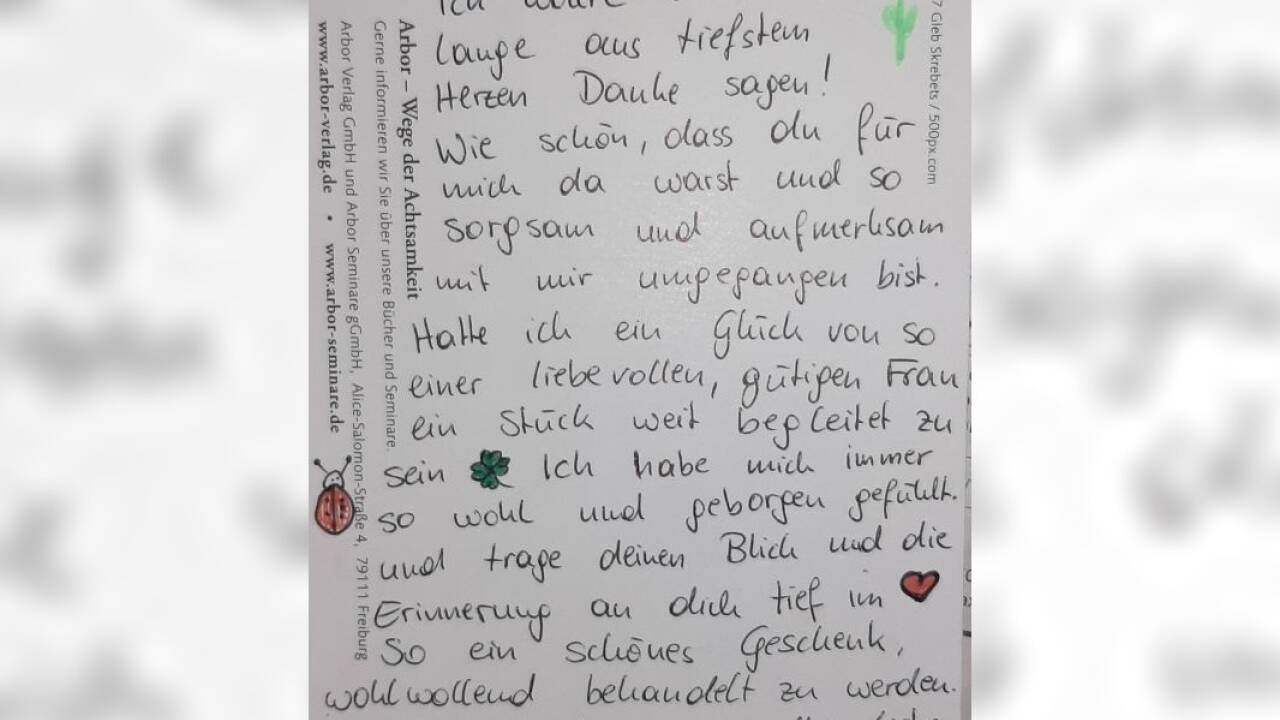 lange aus tiefstem
Herzen Danke sagen!
Wie schön, dass du für
mich da warst und so
sorgsam und aufmerksam
mit mir umgegangen bist.
Hatte ich ein Glück von so
einer liebevollen, gütigen Frau
ein Stück weit begleitet zu
sein Ich habe mich immer
so wohl und geborgen gefühlt.
und trage deinen Blick und die
Erinnerung an dich tief im
So ein schönes Geschenk,
wohlwollend behandelt zu werden.
Arbor – Wege der Achtsamkeit
Gerne informieren wir Sie über unsere Bücher und Seminare.
Arbor Verlag GmbH und Arbor Seminare gGmbH, Alice-Salomon-Straße 4, 79111 Freiburg
www.arbor-verlag.de • www.arbor-seminare.de
7 Gleb Skrebets / 500px.com